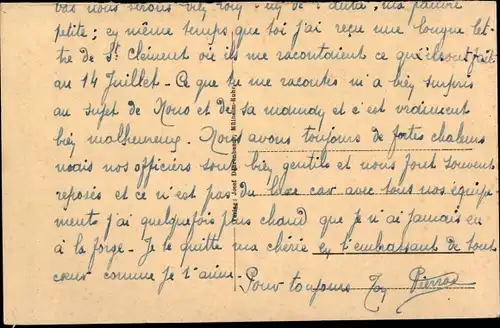 petite ; en même temps que toi j'ai reçu une longue let
tre de St Clément où ils me racontaient ce qu'ils ont fait
au 14 Juillet. Ce que tu me racontes m'a bien surpris
au sujet de Nono et de sa maman et c'est vraiment
bien malheureux. Nous avons toujours de fortes chaleurs
mais nos officiers sont bien gentils et nous font souvent
reposés et ce n'est pas du luxe car avec tous nos équipe
ments j'ai quelquefois plus chaud que je n'ai jamais eu
à la forge. Je te quitte ma chérie en t'embrassant de tout
cœur comme je t'aime. Pour toujours Ton Pierrot
Verlag: Josef